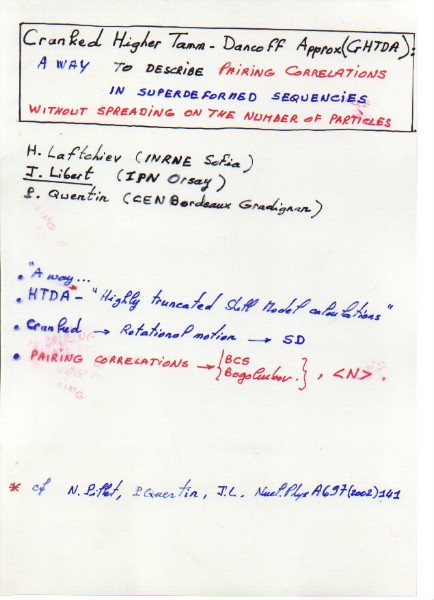 Cranked Higher Tamm-Dancoff Approx(CHTDA):
A WAY TO DESCRIBE PAIRING CORRELATIONS
IN SUPERDEFORMED SEQUENCIES
WITHOUT SPREADING ON THE NUMBER OF PARTICLES
H. Laftchiev (INRNE Sofia)
J. Libert (IPN Orsay)
P. Quentin (CEN Bordeaux Gradignan)
• "A way...
• HTDA - "Highly truncated Shell Model calculations"
• Cranked → Rotational motion → SD
• PAIRING CORRELATIONS → { BCS
Bogoliubov. } , <N> .
* cf N. Pillet, P. Quentin, J.L. Nucl. Phys A697(2002)141